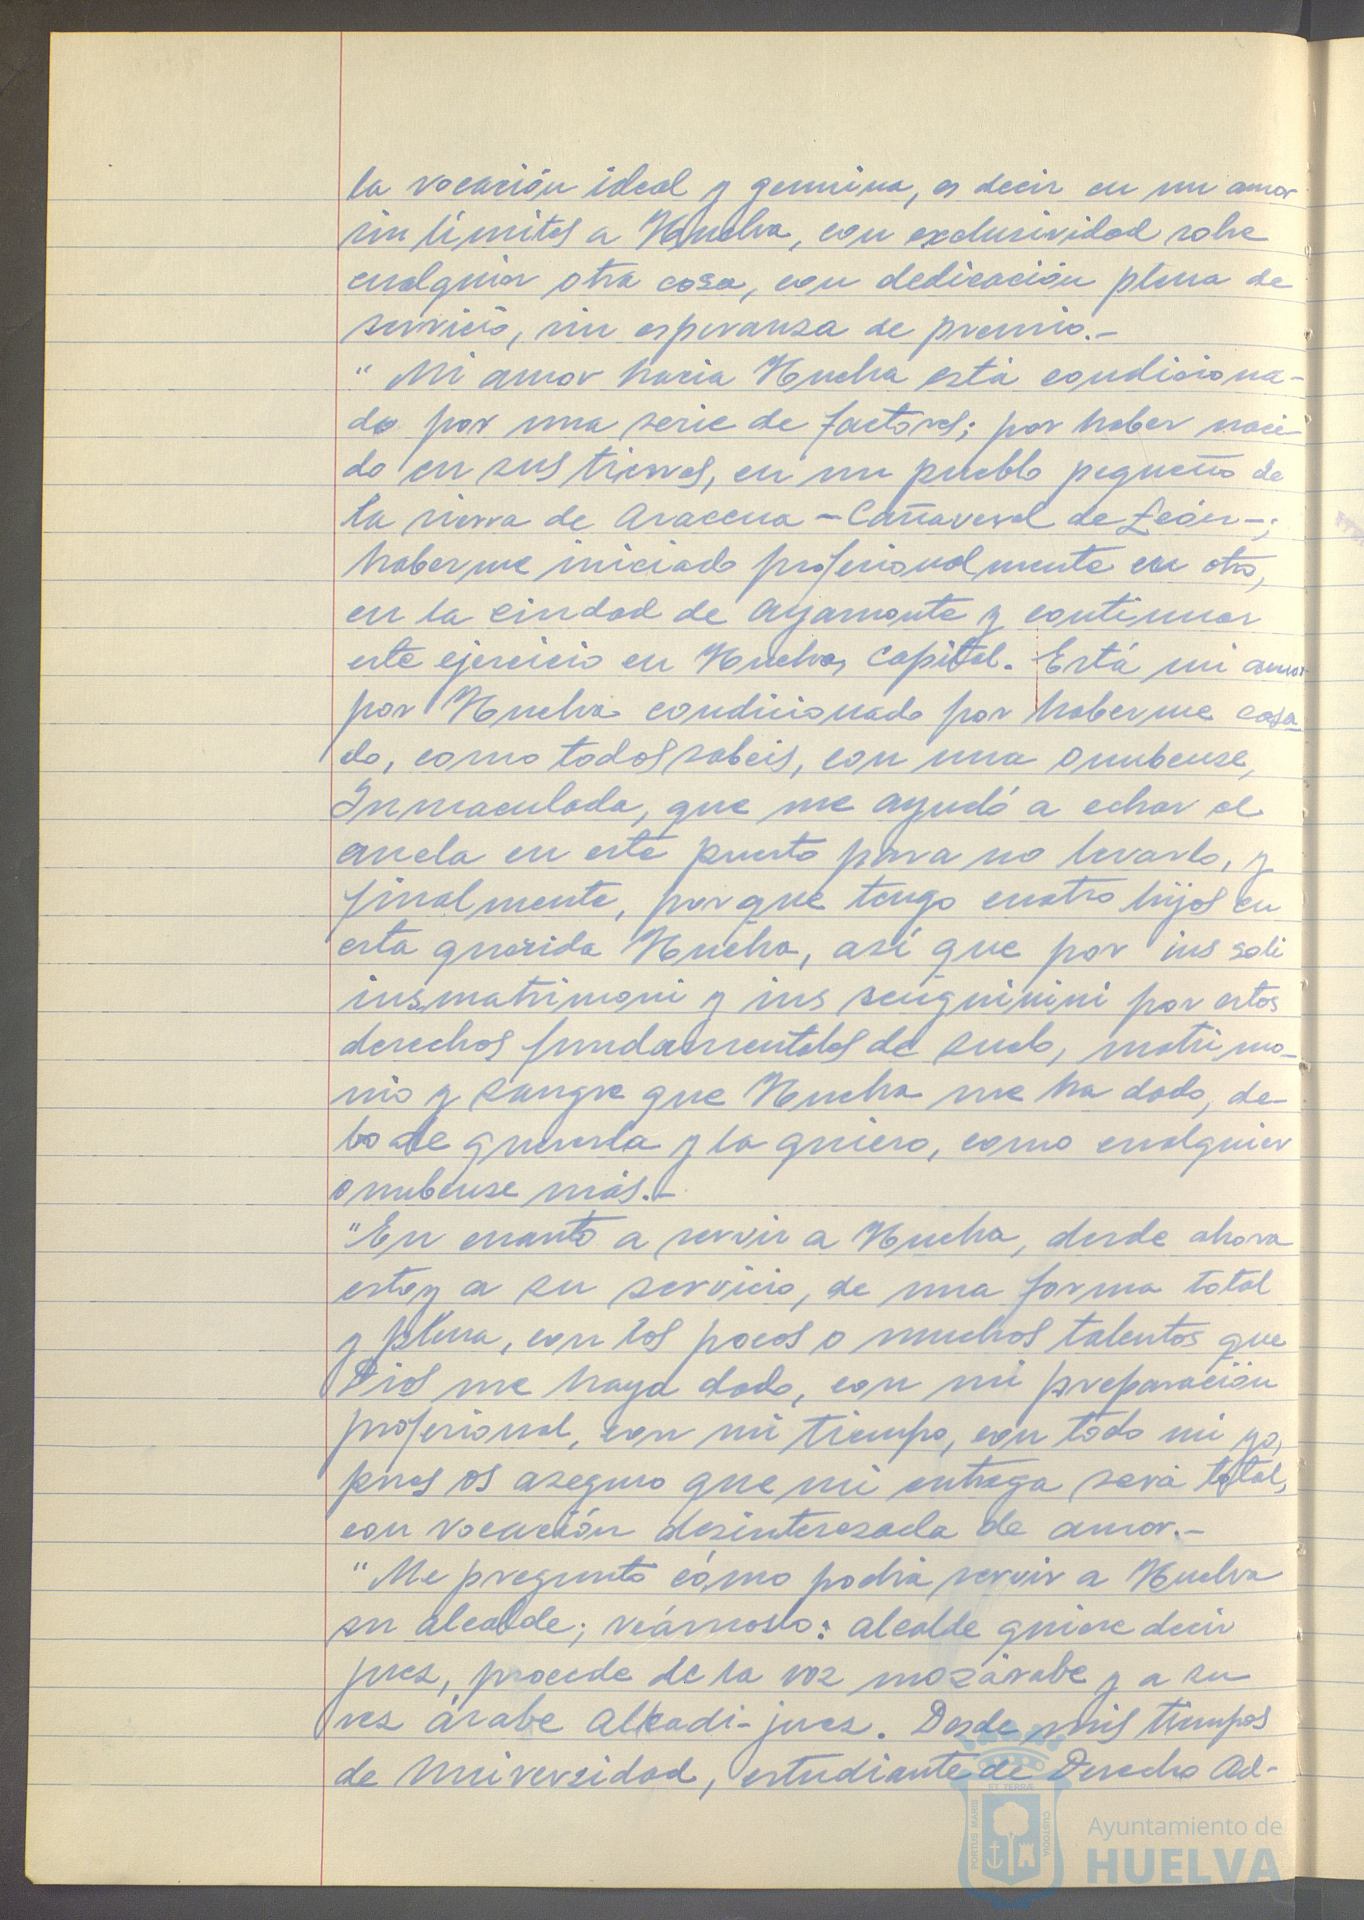 la vocación ideal y genuina, es decir en un amor
sin límites a Huelva, con exclusividad sobre
cualquier otra cosa, con dedicación plena de
servicio, sin esperanza de premio.-
"Mi amor hacia Huelva está condiciona-
do por una serie de factores; por haber naci-
do en sus tierras, en un pueblo pequeño de
la sierra de Aracena -Cañaveral de León-;
haberme iniciado profesionalmente en otro,
en la ciudad de Ayamonte y continuar
este ejercicio en Huelva, Capital. Está mi amor
por Huelva condicionado por haberme casa-
do, como todos sabéis, con una onubense,
Inmaculada, que me ayudó a echar el
ancla en este puerto para no levarlo, y
finalmente, porque tengo cuatro hijos en
esta querida Huelva, así que por ius soli
ius matrimoni y ius senguinini por estos
derechos fundamentales de suelo, matrimo-
nio y sangre que Huelva me ha dado, de-
bo de quererla y la quiero, como cualquier
onubense más.-
"En cuanto a servir a Huelva, desde ahora
estoy a su servicio, de una forma total
y plena, con los pocos o muchos talentos que
Dios me haya dado, con mi preparación
profesional, con mi tiempo, con todo mi yo,
pues os aseguro que mi entrega será total,
con vocación desinteresada de amor.-
"Me pregunto cómo podría servir a Huelva
su alcalde; veámoslo: alcalde quiere decir
juez, procede de la voz mozárabe y a su
vez árabe Alkadi-juez. Desde mis tiempos
de Universidad, estudiante de Derecho Ad-
PORTUS MARIS ET TERRAE CUSTODIA
Ayuntamiento de
HUELVA